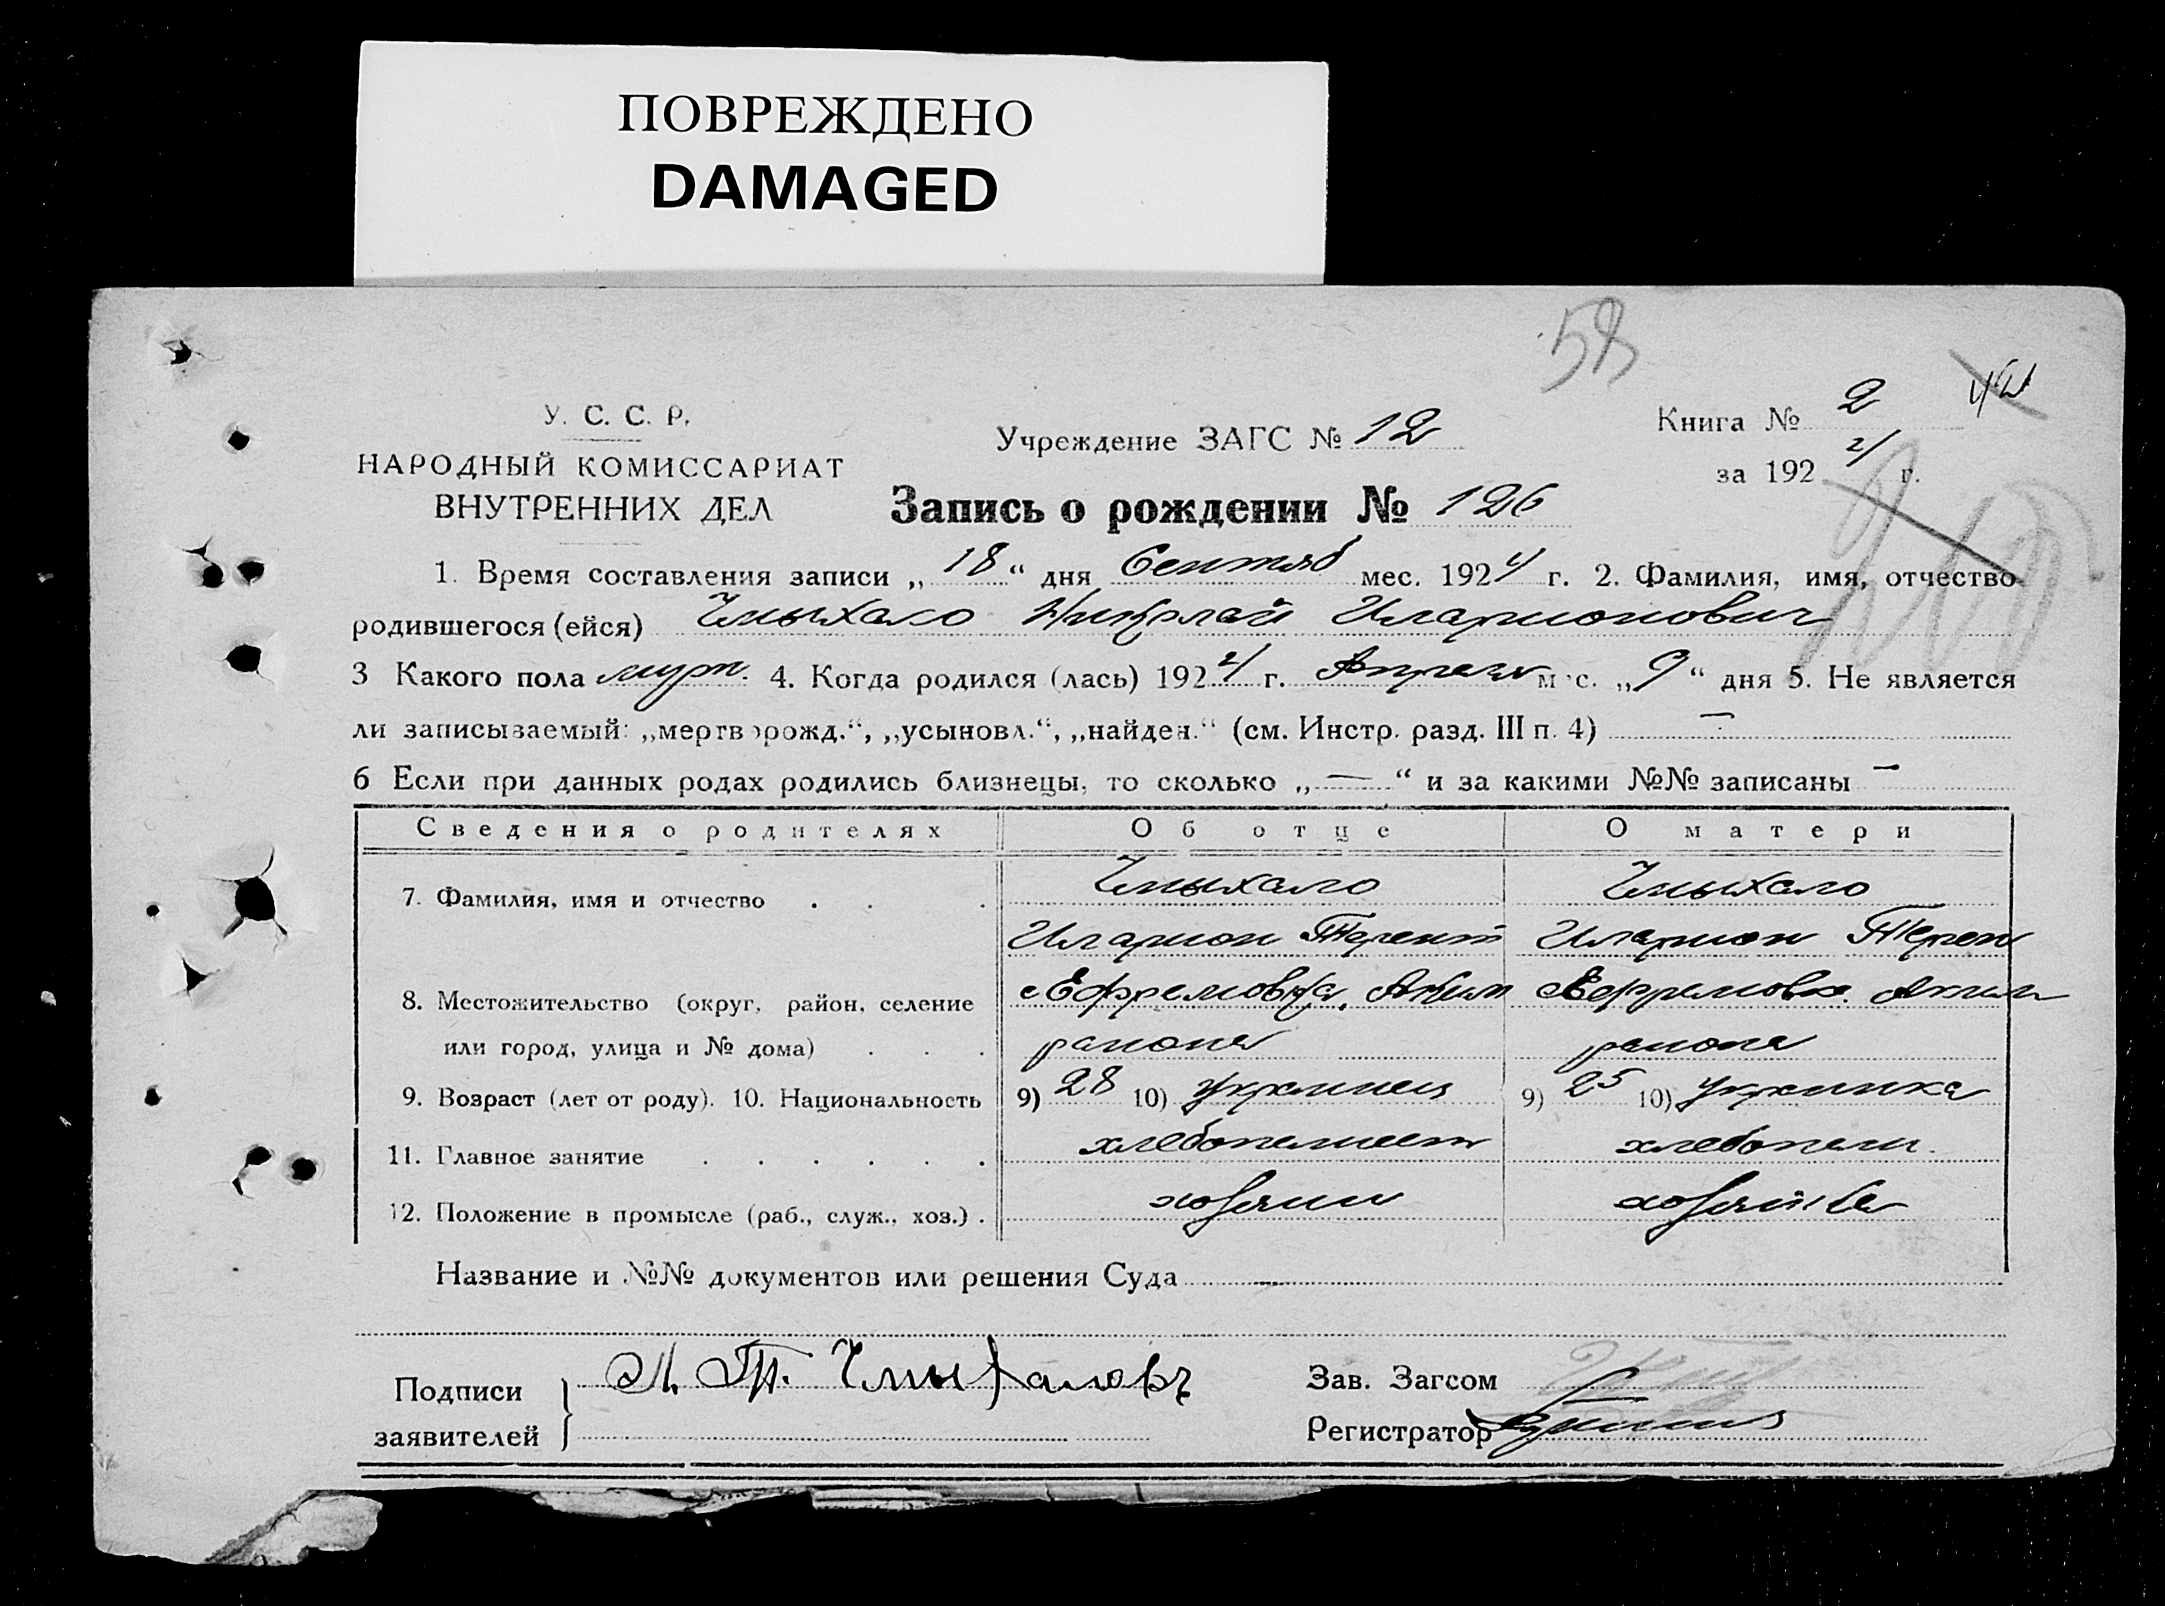 ПОВРЕЖДЕНО
DAMAGED
58
У. С. С. Р.
НАРОДНЫЙ КОМИССАРИАТ
ВНУТРЕННИХ ДЕЛ
Учреждение ЗАГС № 12
Книга № 2
за 1924 г.
Запись о рождении № 126
1. Время составления записи „18“ дня Сентяб мес. 1924 г. 2. Фамилия, имя, отчество
родившегося (ейся) Чмыхало Николай Иларионович
3 Какого пола муж. 4. Когда родился (лась) 1924 г. Апреля м с. „9“ дня 5. Не является
ли записываемый: „мертворожд.“, „усыновл.“, „найден.“ (см. Инстр. разд. III п. 4) —
6 Если при данных родах родились близнецы, то сколько „—“ и за какими №№ записаны —
Сведения о родителях Об отце О матери
7. Фамилия, имя и отчество Чмыхало Чмыхало
Иларион Терент Иларион Терен
8. Местожительство (округ, район, селение Ефремовка, Аким Ефремовка. Аким
или город, улица и № дома) района района
9. Возраст (лет от роду). 10. Национальность 9) 28 10) Украинец 9) 25 10) Украинка
11. Главное занятие хлебопашест хлебопаш.
12. Положение в промысле (раб., служ., хоз.) хозяин хозяйка
Название и №№ документов или решения Суда —
Подписи
заявителей
Т. Чмыхаловъ
Зав. Загсом
Регистратор